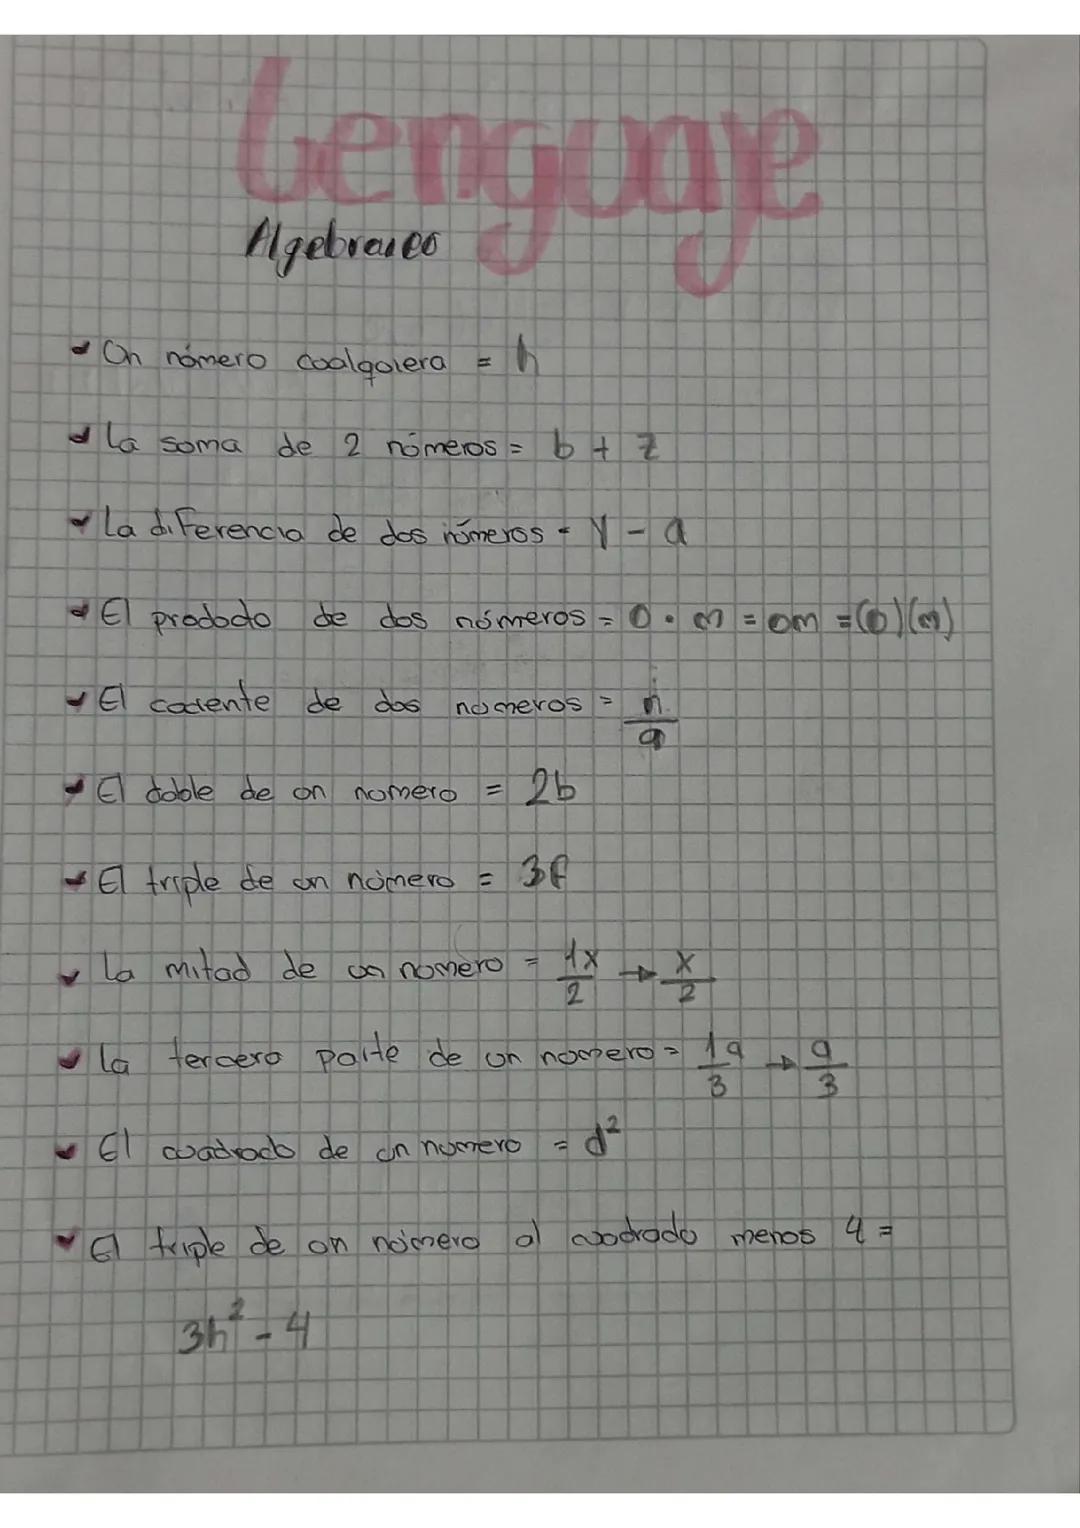 Lenguaje
Algebraico
Un número cualquiera = h
La suma de 2 números = b + z
La diferencia de dos números = y - a
El producto de dos números = o · m = om = (o)(m)
El cociente de dos números = n/q
El doble de un numero = 2b
El triple de un número = 3f
La mitad de un numero = 1x/2 → x/2
La tercera parte de un numero = 1q/3 → q/3
El cuadrado de un numero = d²
El triple de un número al cuadrado menos 4 =
3h² - 4